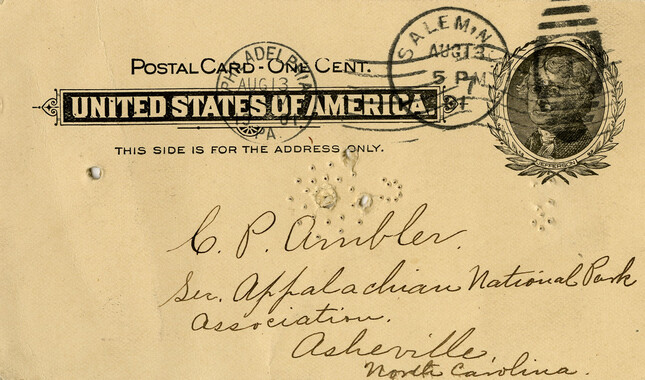 POSTAL CARD - ONE CENT.
UNITED STATES OF AMERICA.
THIS SIDE IS FOR THE ADDRESS ONLY.
PHILADELPHIA
AUG 13
PA.
SALEM, N.
AUG 13
5 PM
JEFFERSON
C. P. Ambler.
Sec. Appalachian National Park
Association.
Asheville
North Carolina.